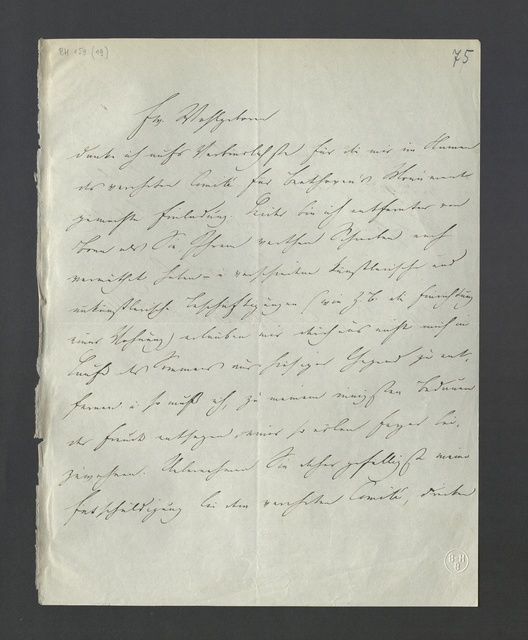 BH 159 (19)
75
Ew. Wohlgeboren
danke ich aufs Verbindlichste für die mir im Namen
des verehrten Comité für Beethoven's Monument
gemachte Einladung. Leider bin ich entfernter von
Bonn als Sie Ihrem werthen Schreiben nach
vermuthet haben – u verschiedene künstlerische und
unkünstlerische Beschäftigungen (wie z.b. die Einrichtung
einer Wohnung) erlauben mir durchaus nicht mich im
Laufe des Sommers aus hiesiger Gegend zu ent-
fernen u so muß ich, zu meinem innigsten Bedauern
der Freude entsagen, einer so edlen Feyer bei-
zuwohnen. Uebernehmen Sie daher gefälligst meine
Entschuldigung bei dem verehrten Comité,
B·H
B